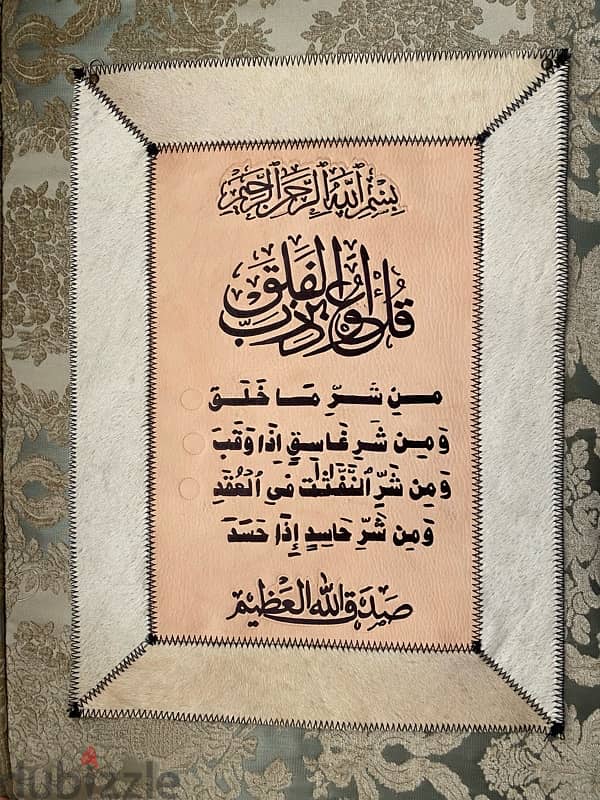 بِسْمِ ٱللَّهِ ٱلرَّحْمَٰنِ ٱلرَّحِيمِ
قُلْ أَعُوذُ بِرَبِّ الْفَلَقِ
مِنْ شَرِّ مَا خَلَقَ
وَمِنْ شَرِ غَاسِقٍ اِذَا وَقَبَ
وَمِنْ شَرِّ ٱلنَّفَّٰثَٰتِ فِي ٱلْعُقَدِ
وَمِنْ شَرِّ حَاسِدٍ إِذَا حَسَدَ
صَدَقَ الله العَظِيْم
dubizzle